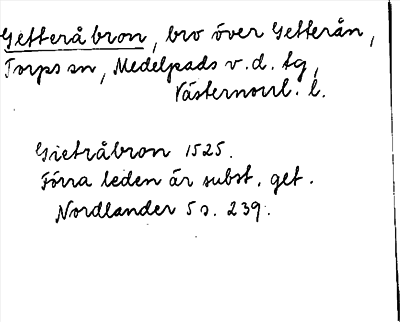 Getterå bron, bro över Getterån,
Torps sn, Medelpads v. d. tg,
Västernorrl. l.
Gietråbron 1525.
Förra leden är subst. get.
Nordlander 5 s. 239.